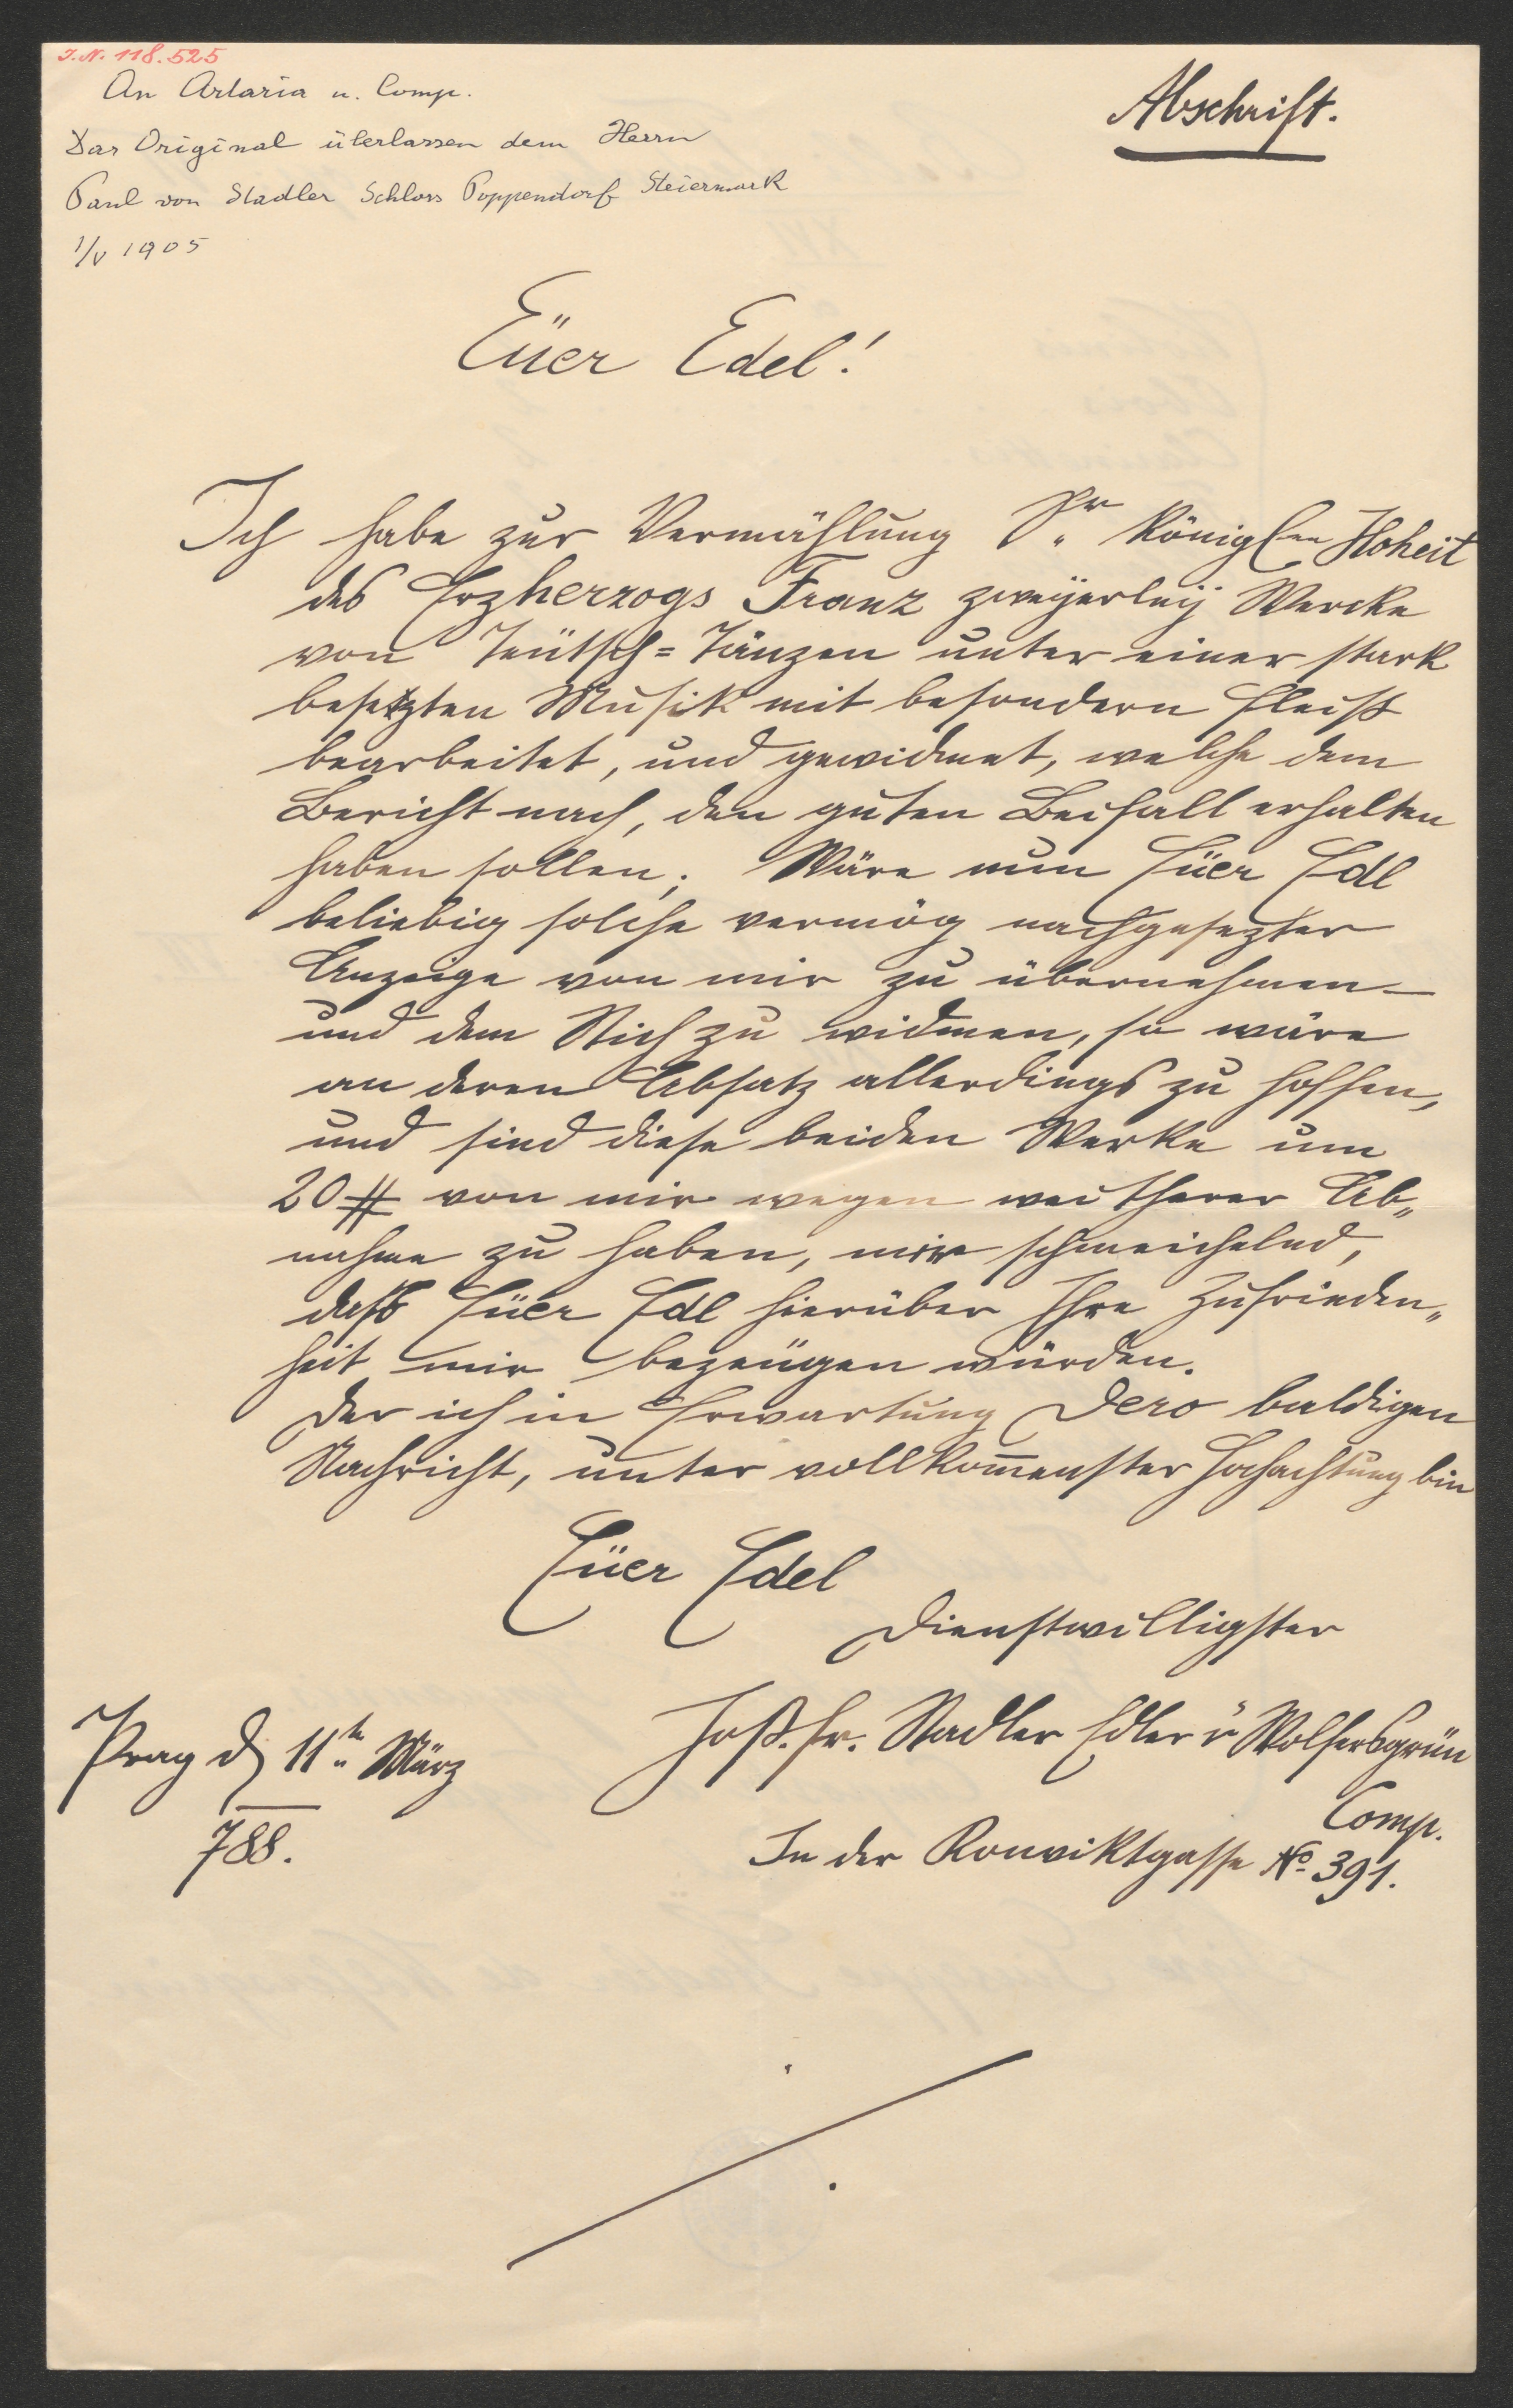 I.N. 118.525
An Artaria u. Comp.
Das Original überlassen dem Herrn
Paul von Stadler Schloss Poppendorf Steiermark
1/V 1905
Abschrift.
Eüer Edel!
Ich habe zur Vermählung Sr. Königlen Hoheit
des Erzherzogs Franz zweÿerleÿ Wercke
von Teütsch=Tänzen unter einer stark
besetzten Musik mit besondern Fleiß
bearbeitet, und gewidmet, welche dem
Bericht nach, den guten Beifall erhalten
haben sollen; Wäre nun Eüer Edl
beliebig solche vermög nachgesezter
Anzeige von mir zu übernehmen
und dem Stich zu widmen, so wäre
an deren Absatz allerdings zu hoffen,
und sind diese beiden Werke um
20 # von mir wegen weitherer Ab„
nahme zu haben, mir schmeichelnd,
daß Eüer Edl hierüber Ihre Zufrieden„
heit mir bezeügen würden.
Der ich in Erwartung Dero baldigen
Nachricht, unter vollkom̅enster Hochachtung bin
Eüer Edel
Dienstwilligster
Jos. Fr. Stadler Edler v Wolfersgrün
Comp.
Prag d 11te März
788.
In der Konviktgasse No 391.